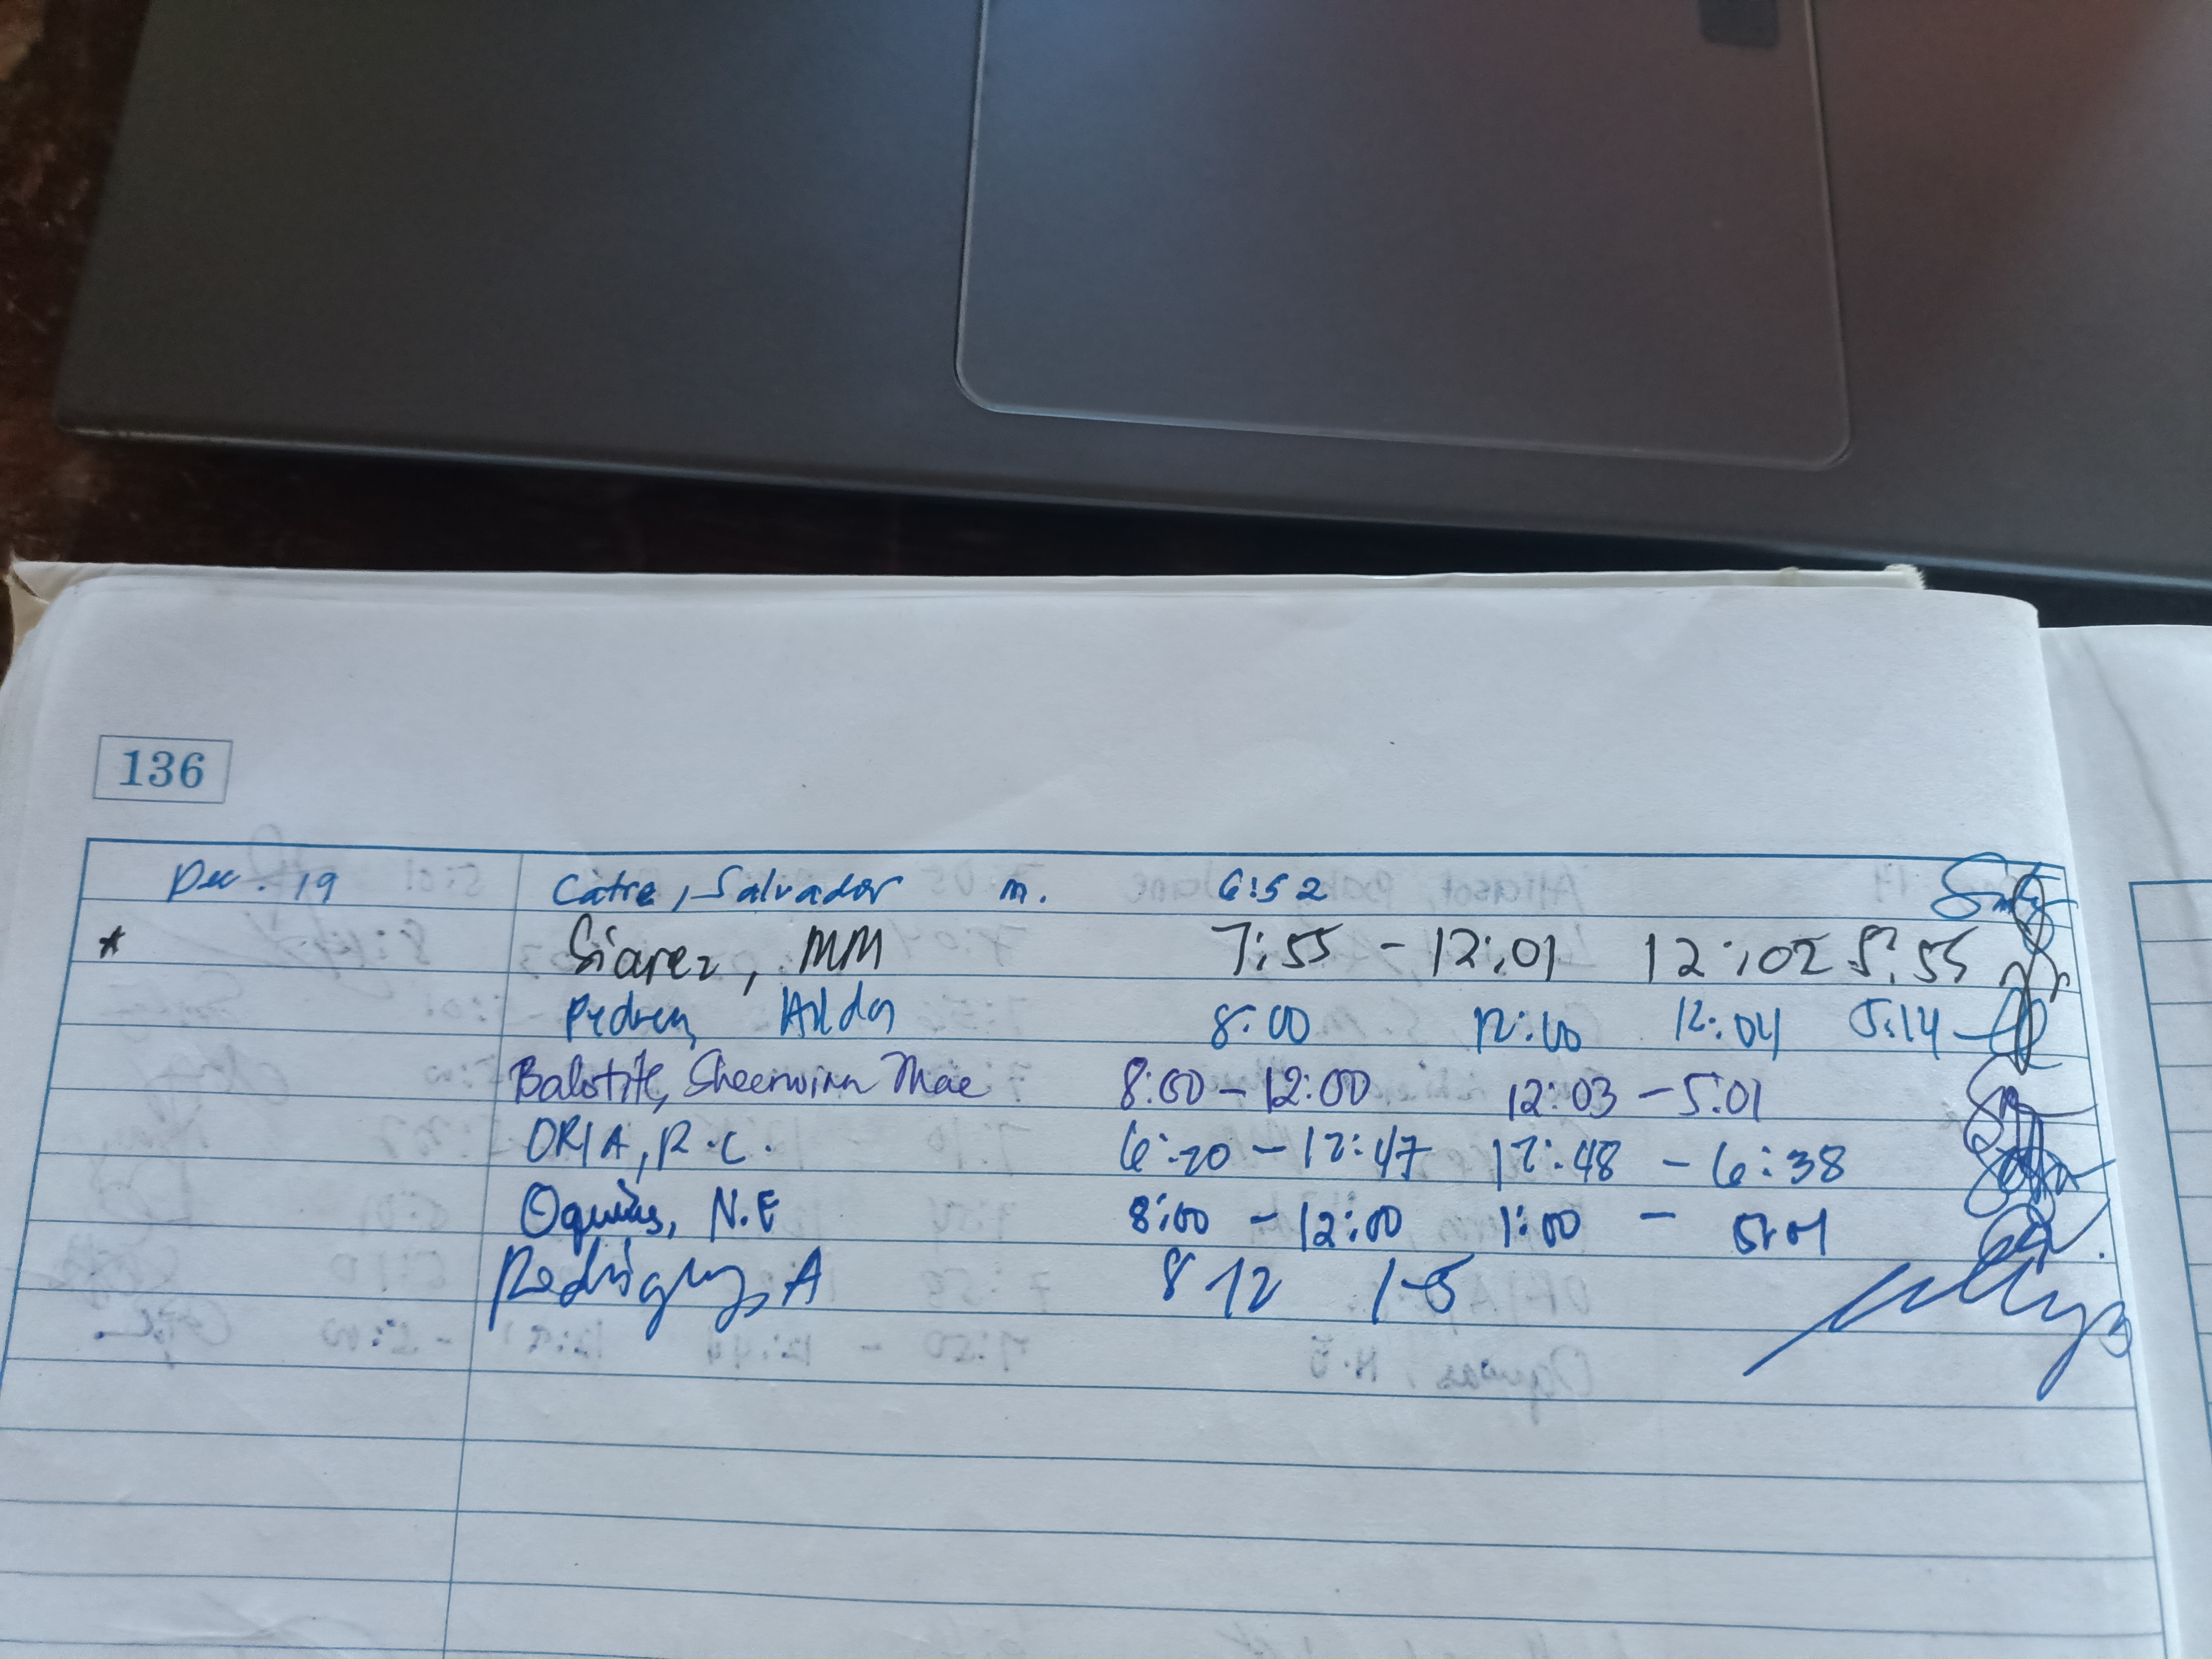 136
Dec. 19 Catre, Salvador m. 6:52
* Siarez, MM 7:55 - 12:01 12:02 5:55
8:00 12:00 12:04 5:14
Balotite, Sheerwinn Mae 8:00 - 12:00 12:03 - 5:01
ORIA, R.C. 6:20 - 12:47 12:48 - 6:38
Oquias, N.E 8:00 - 12:00 1:00 - 5:01
A 8 12 1-5